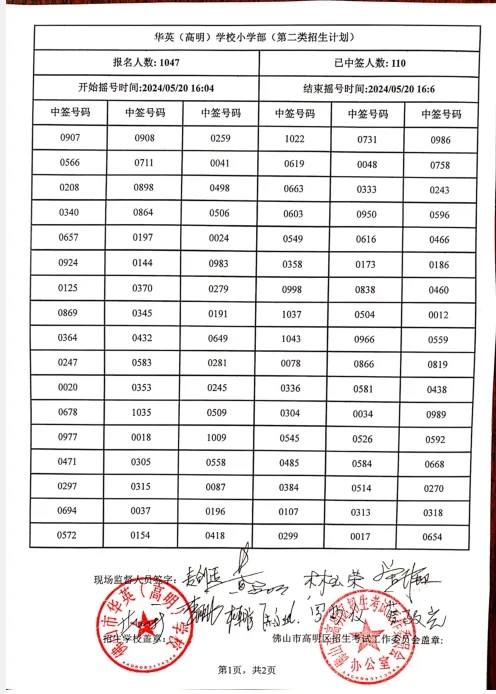 华英（高明）学校小学部（第二类招生计划）
报名人数: 1047 已中签人数: 110
开始摇号时间:2024/05/20 16:04 结束摇号时间:2024/05/20 16:6
中签号码 中签号码 中签号码 中签号码 中签号码 中签号码
0907 0908 0259 1022 0731 0986
0566 0711 0041 0619 0048 0758
0208 0898 0498 0663 0333 0243
0340 0864 0506 0603 0950 0596
0657 0197 0024 0549 0616 0466
0924 0144 0983 0358 0173 0186
0125 0370 0279 0998 0838 0460
0869 0345 0191 1037 0504 0012
0364 0432 0649 1043 0966 0559
0247 0583 0281 0078 0866 0819
0020 0353 0245 0336 0581 0438
0678 1035 0509 0304 0034 0989
0977 0018 1009 0545 0526 0592
0471 0305 0558 0485 0584 0668
0297 0315 0087 0384 0514 0270
0694 0037 0196 0107 0313 0318
0572 0154 0418 0299 0017 0654
现场监督人员签字:
招生学校盖章: 佛山市高明区招生考试工作委员会盖章:
佛山市华英（高明）学校
办公室
第1页，共2页